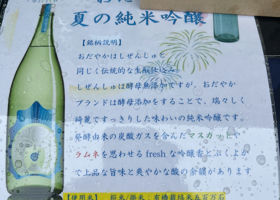 夏の純米吟醸
【銘柄説明】
おだやかはしぜんしゅと
同じく伝統的な生酛仕込み。
しぜんしゅは酵母無添加ですが、おだやか
ブランドは酵母添加をすることで、瑞々しく
綺麗ですっきりした味わいの純米吟醸です。
発酵由来の炭酸ガスを含んだマスカットや
ラムネを思わせるfreshな吟醸香とぷくよか
で上品な旨味と爽やかな酸の余韻があります
【使用米】